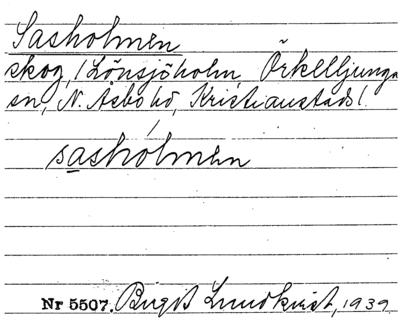 Sasholmen
skog, Lönsjöholm, Örkelljunga
sn, N. Åsbo hd, Kristianstads l.
sashólmen
Nr 5507. Birgit Lundkvist, 1939.